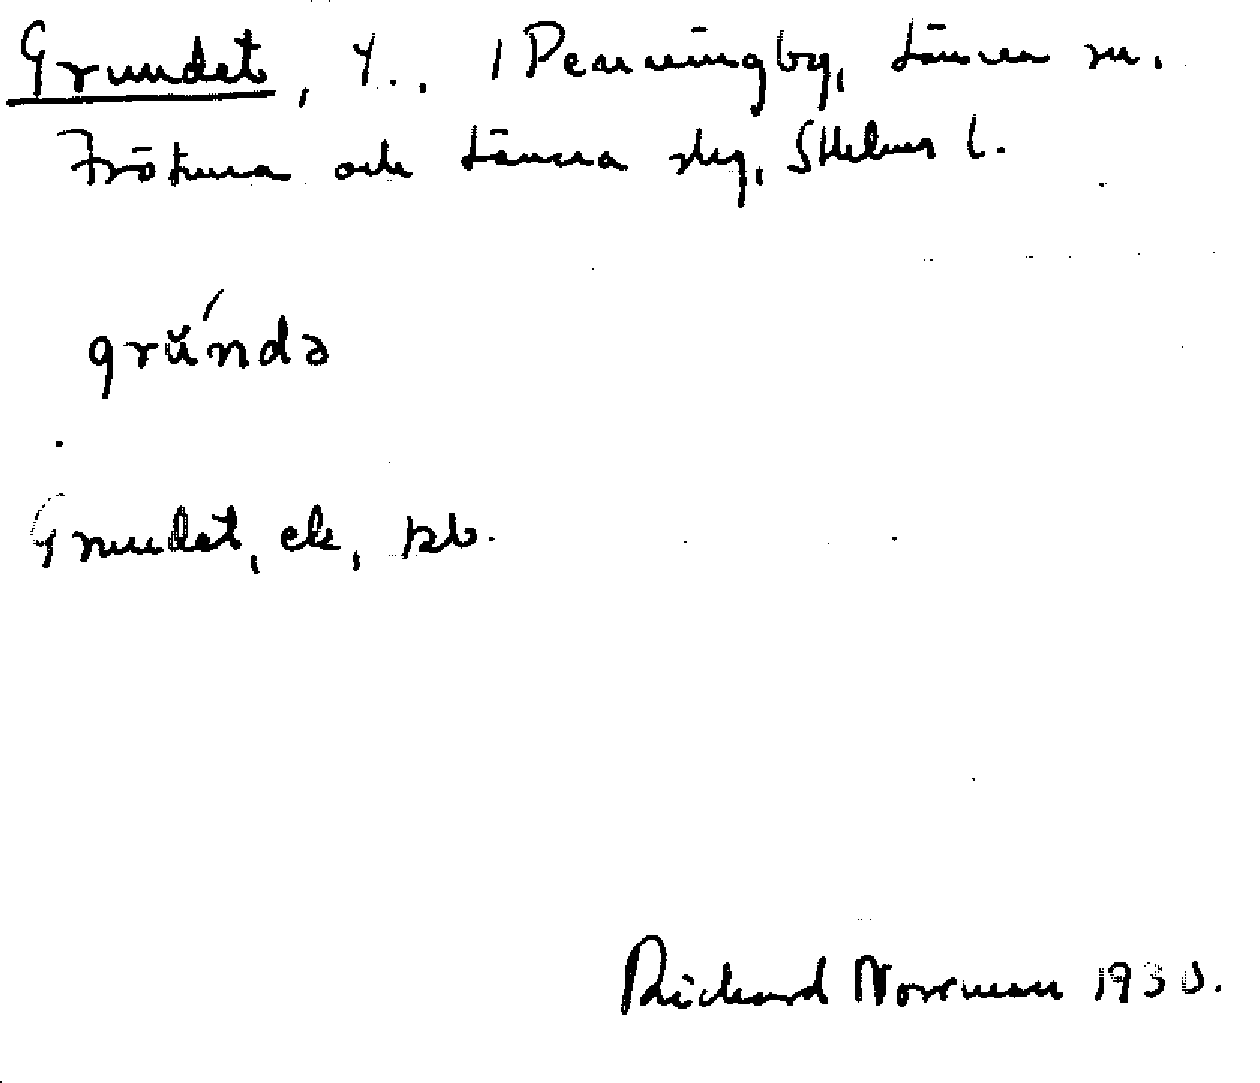 Grundet, t., 1 Penningby, Länna sn.
Frötuna och Länna skg, Sthlms l.
grŭ́ndə
Grundet, ek,
Richard Norrman 1930.